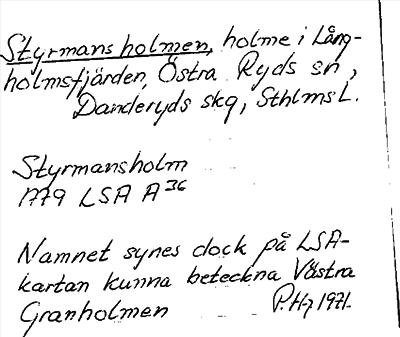 Styrmansholmen, holme i Lång-
holmsfjärden, Östra Ryds sn,
Danderyds skg, Sthlms L.
Styrmansholm
1779 LSA A36
Namnet synes dock på LSA-
kartan kunna beteckna Västra
Granholmen P.H-z 1971.